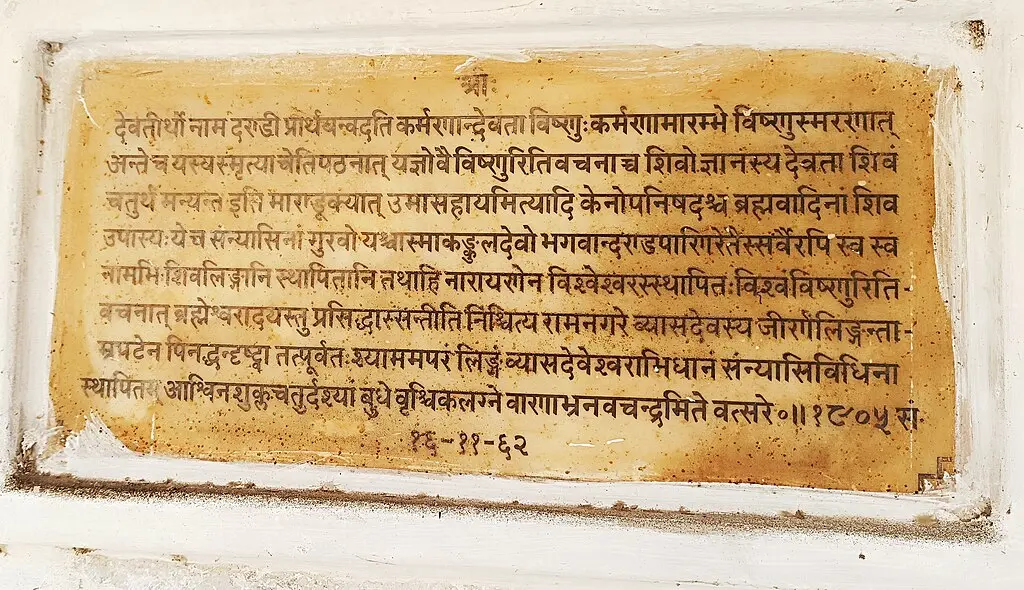 श्रीः
देवतीर्थो नाम दण्डी प्रार्थयन्वदति कर्मणान्देवता विष्णुः कर्मणामारम्भे विष्णुस्मरणात्
अन्तेच यस्यस्मृत्याचेतिपठनात् यज्ञोवै विष्णुरितिवचनाच्च शिवो ज्ञानस्य देवता शिवं
चतुर्थं मन्यन्त इति माण्डूक्यात् उमासहायमित्यादि केनोपनिषदश्च ब्रह्मवादिनां शिव
उपास्यः येच संन्यासिनां गुरवो यश्चास्माकङ्कुलदेवो भगवान्दण्डपाणिरेतैस्सर्वैरपि स्व स्व
नामभिः शिवलिङ्गानि स्थापितानि तथाहि नारायणेन विश्वेश्वरस्स्थापितः विश्वंविष्णुरिति-
वचनात् ब्रह्मेश्वरादयस्तु प्रसिद्धास्सन्तीति निश्चित्य रामनगरे व्यासदेवस्य जीर्णंलिङ्गन्ता-
म्रपटेन पिनद्धन्दृष्ट्वा तत्पूर्वतः श्याममपरं लिङ्गं व्यासदेवेश्वराभिधानं संन्यासिविधिना
स्थापितम् आश्विनशुक्लचतुर्दश्यां बुधे वृश्चिकलग्ने वारणाभ्रनवचन्द्रमिते वत्सरे०॥ १९०५ सं.
१६-११-६२